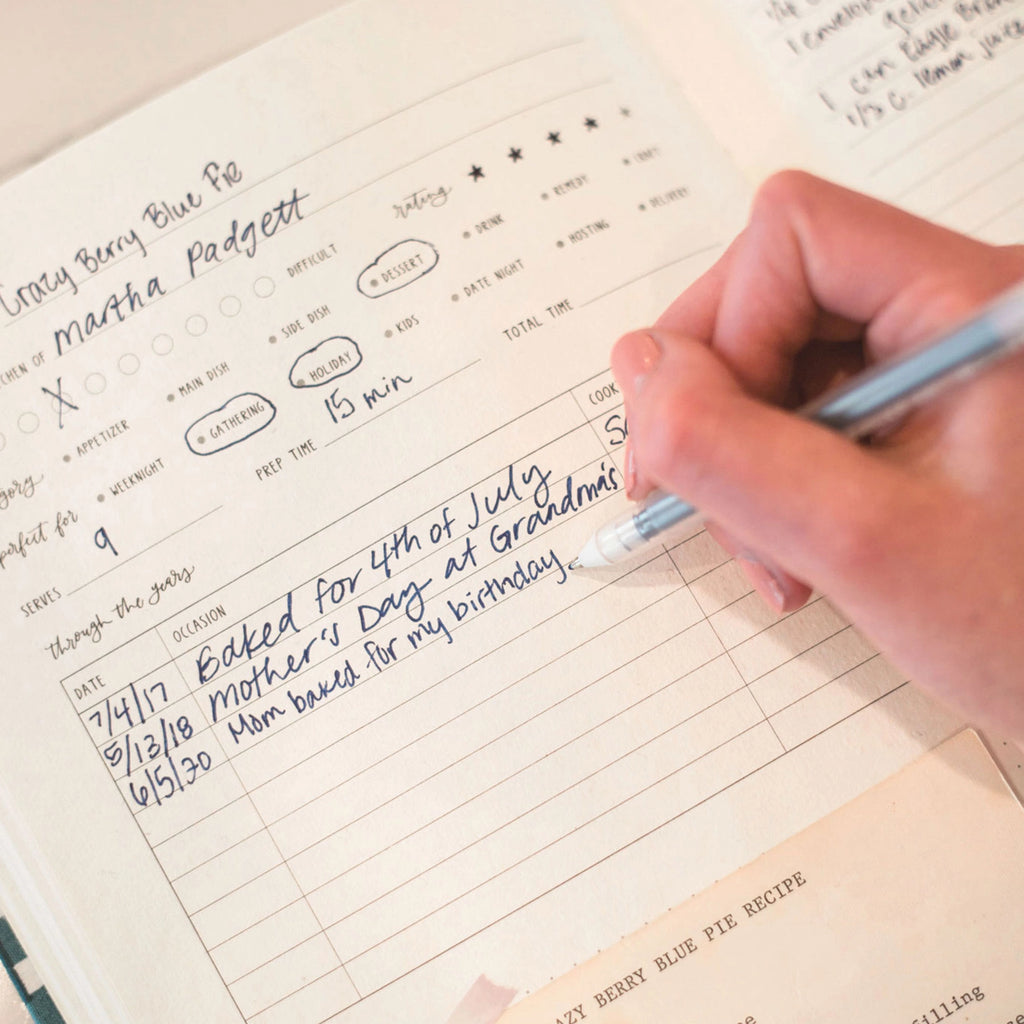 Crazy Berry Blue Pie
Martha Padgett
rating
DIFFICULT
DESSERT
DRINK
REMEDY
CRAFT
APPETIZER
MAIN DISH
SIDE DISH
perfect for
WEEKNIGHT
GATHERING
HOLIDAY
KIDS
DATE NIGHT
HOSTING
DELIVERY
SERVES 9
PREP TIME 15 min
TOTAL TIME
through the years
DATE OCCASION COOK
7/4/17 Baked for 4th of July
5/13/18 Mother's Day at Grandma's
6/5/20 Mom baked for my birthday
1 envelope
1 can Eagle
1/3 c. lemon juice
BERRY BLUE PIE RECIPE
filling